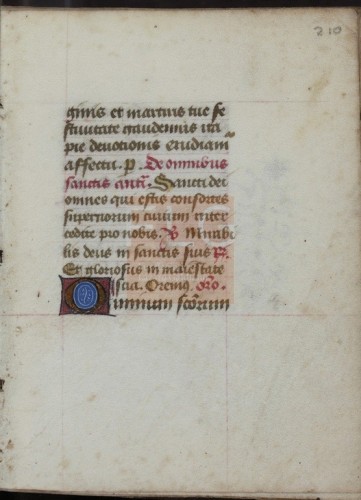 210
ginis et martiris tue fe
stiuitate gaudemus ita
pie deuotionis erudiam̄
affectu. p. De omnibus
sanctis antī. Sancti dei
omnes qui estis consortes
supernorum ciuium inter
cedite pro nobis. V Mirabi
lis deus in sanctis suis R.
Et gloriosus in maiestate
sua. Oremus oro.
Omnium sc̄torum